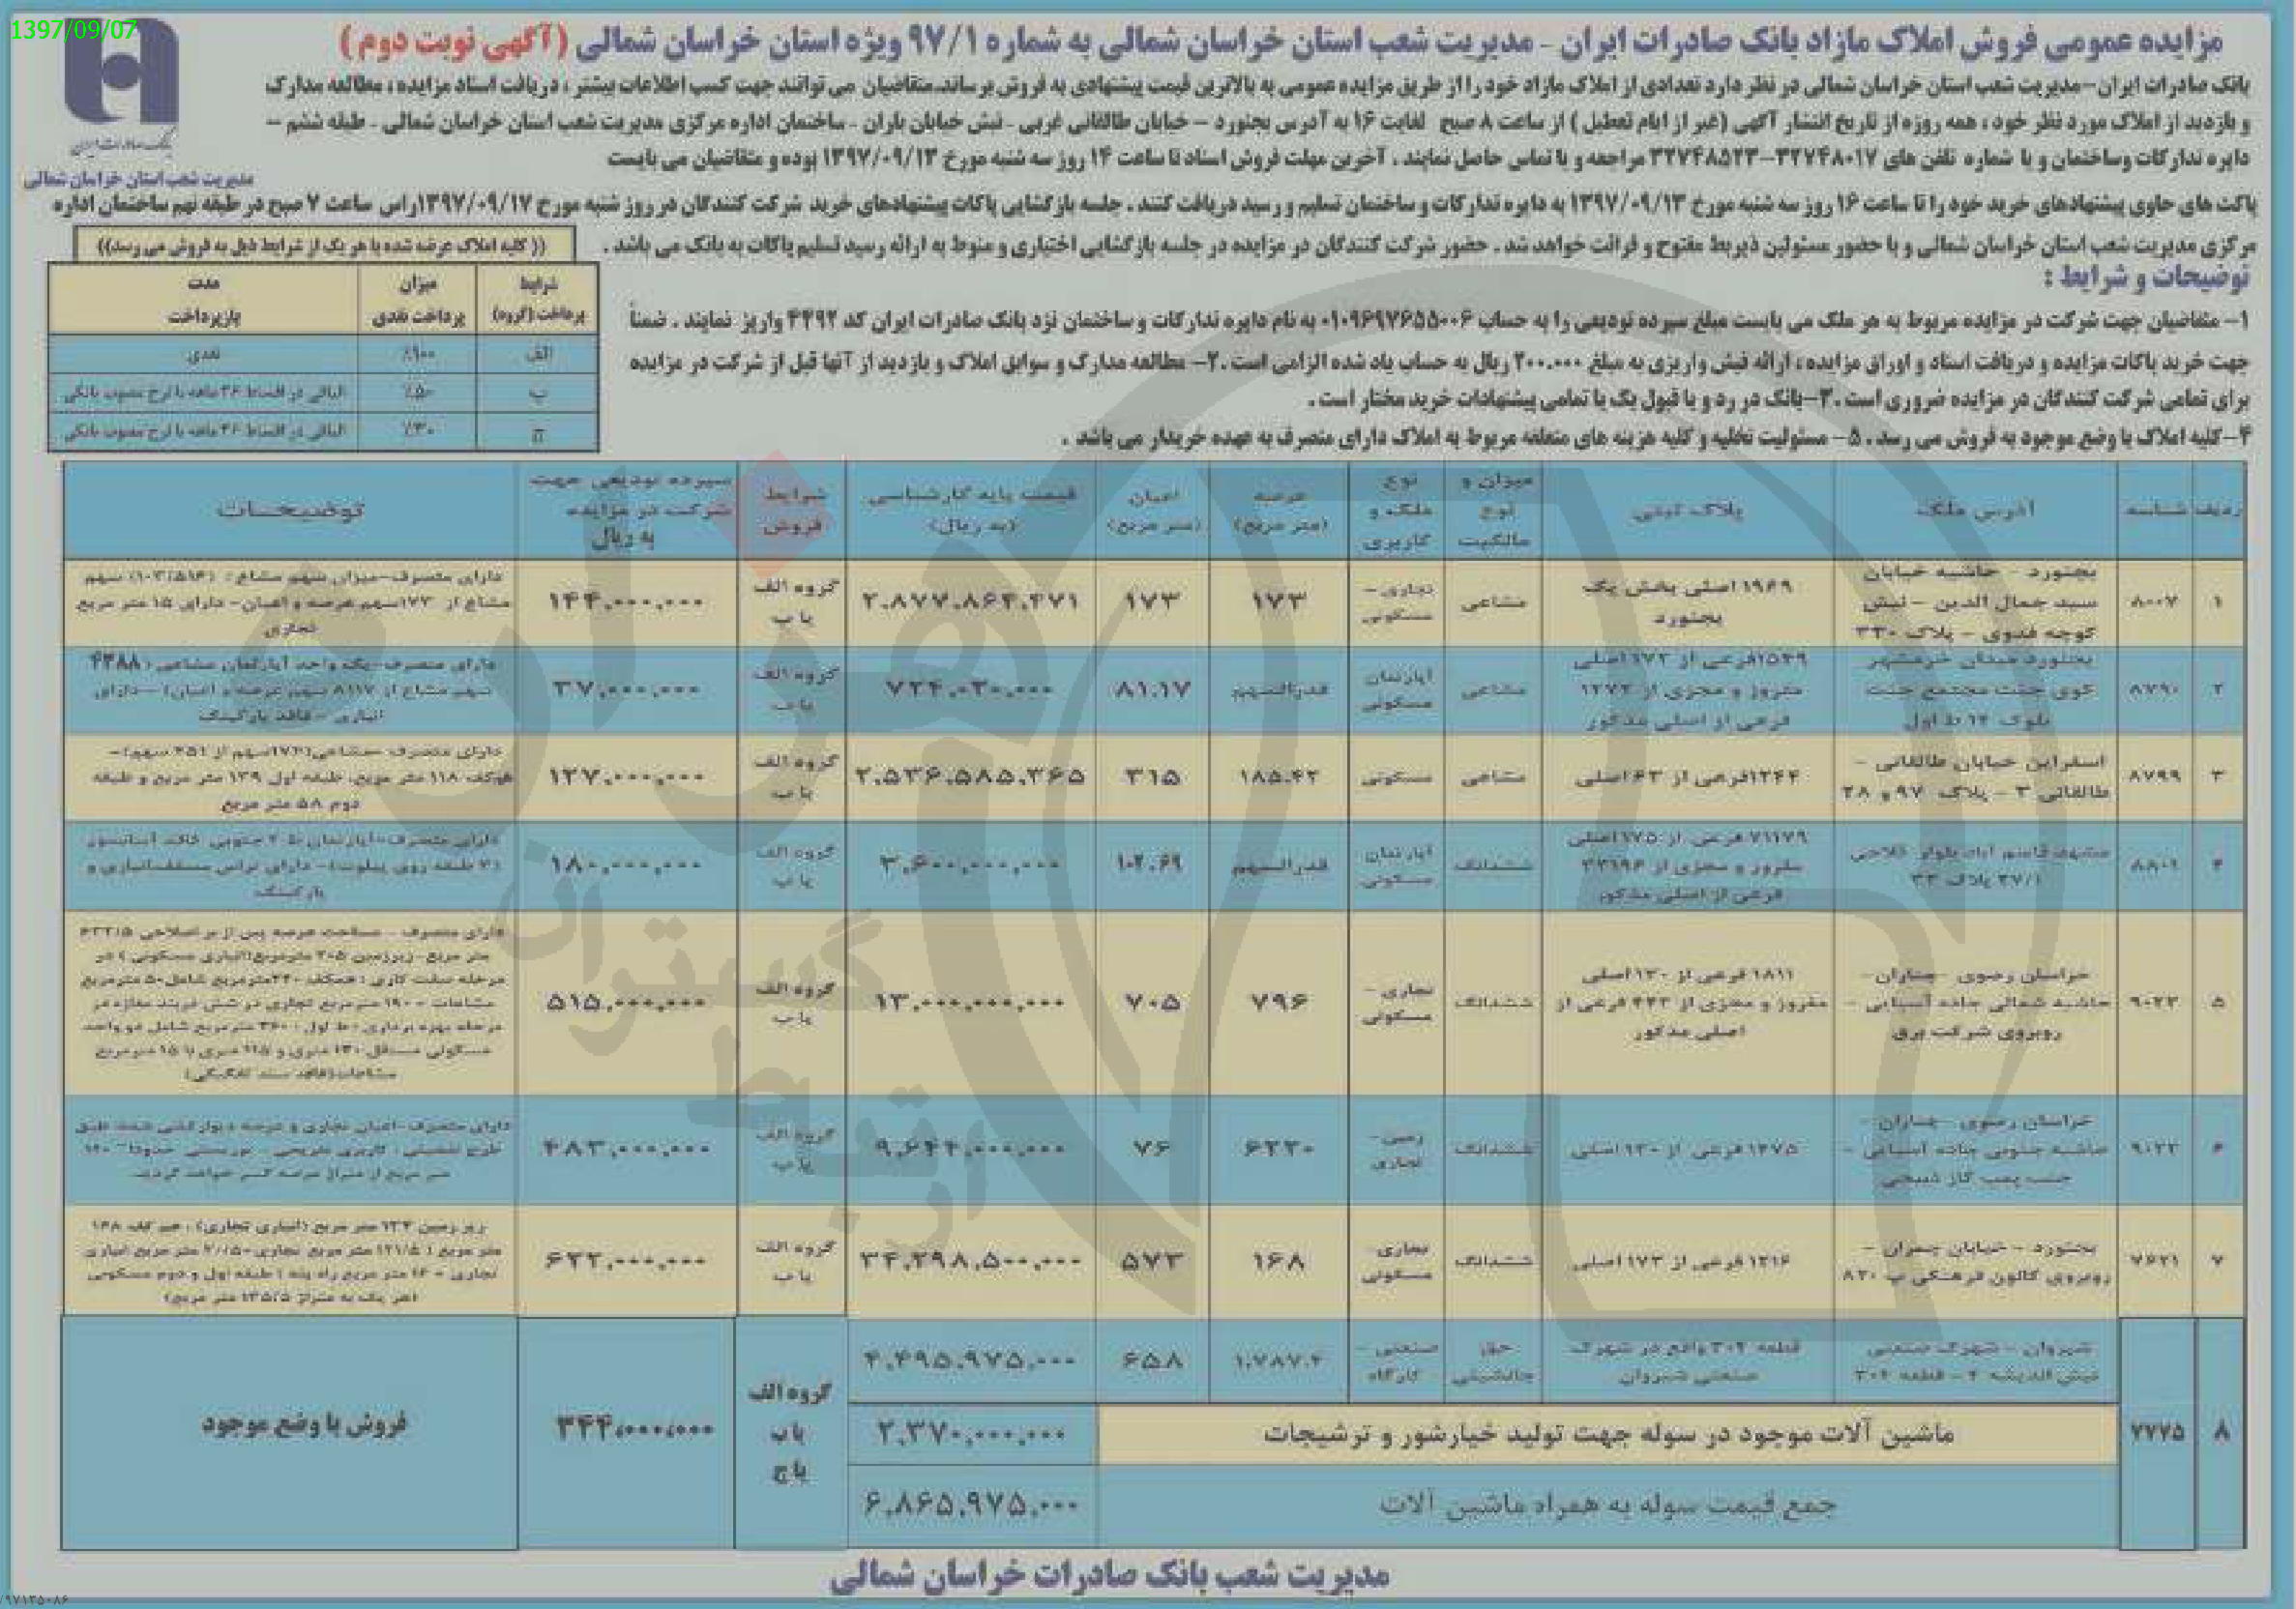 1397/09/07
مزایده عمومی فروش املاک مازاد بانک صادرات ایران - مدیریت شعب استان خراسان شمالی به شماره ۹۷/۱ ویژه استان خراسان شمالی (آگهی نوبت دوم)
بانک صادرات ایران
مدیریت شعب استان خراسان شمالی
بانک صادرات ایران-مدیریت شعب استان خراسان شمالی در نظر دارد تعدادی از املاک مازاد خود را از طریق مزایده عمومی به بالاترین قیمت پیشنهادی به فروش برساند.متقاضیان می توانند جهت کسب اطلاعات بیشتر ، دریافت اسناد مزایده ، مطالعه مدارک
و بازدید از املاک مورد نظر خود ، همه روزه از تاریخ انتشار آگهی (غیر از ایام تعطیل ) از ساعت ۸ صبح لغایت ۱۶ به آدرس بجنورد - خیابان طالقانی غربی - نبش خیابان باران - ساختمان اداره مرکزی مدیریت شعب استان خراسان شمالی - طبقه ششم -
دایره تدارکات وساختمان و یا شماره تلفن های ۳۲۷۴۸۰۱۷-۳۲۷۴۸۵۲۳ مراجعه و یا تماس حاصل نمایند . آخرین مهلت فروش اسناد تا ساعت ۱۴ روز سه شنبه مورخ ۱۳۹۷/۰۹/۱۳ بوده و متقاضیان می بایست
پاکت های حاوی پیشنهادهای خرید خود را تا ساعت ۱۶ روز سه شنبه مورخ ۱۳۹۷/۰۹/۱۳ به دایره تدارکات و ساختمان تسلیم و رسید دریافت کنند . جلسه بازگشایی پاکات پیشنهادهای خرید شرکت کنندگان در روز شنبه مورخ ۱۳۹۷/۰۹/۱۷راس ساعت ۷ صبح در طبقه نهم ساختمان اداره
مرکزی مدیریت شعب استان خراسان شمالی و با حضور مسئولین ذیربط مفتوح و قرائت خواهد شد . حضور شرکت کنندگان در مزایده در جلسه بازگشایی اختیاری و منوط به ارائه رسید تسلیم پاکات به بانک می باشد .
توضیحات و شرایط :
۱- متقاضیان جهت شرکت در مزایده مربوط به هر ملک می بایست مبلغ سپرده تودیعی را به حساب ۰۱۰۹۶۹۷۶۵۵۰۰۶ به نام دایره تدارکات و ساختمان نزد بانک صادرات ایران کد ۴۴۹۲ واریز نمایند . ضمناً
جهت خرید پاکات مزایده و دریافت اسناد و اوراق مزایده ، ارائه فیش واریزی به مبلغ ۲۰۰.۰۰۰ ریال به حساب یاد شده الزامی است .۲- مطالعه مدارک و سوابق املاک و بازدید از آنها قبل از شرکت در مزایده
برای تمامی شرکت کنندگان در مزایده ضروری است .۳-بانک در رد و یا قبول یک یا تمامی پیشنهادات خرید مختار است .
۴-کلیه املاک با وضع موجود به فروش می رسد . ۵- مسئولیت تخلیه و کلیه هزینه های متعلقه مربوط به املاک دارای متصرف به عهده خریدار می باشد .
(( کلیه املاک عرضه شده با هر یک از شرایط ذیل به فروش می رسد))
شرایط پرداخت (گروه) میزان پرداخت نقدی مدت بازپرداخت
الف ۱۰۰٪ نقدی
ب ۵۰٪ الباقی در اقساط ۳۶ ماهه با نرخ مصوب بانکی
ج ۳۰٪ الباقی در اقساط ۳۶ ماهه با نرخ مصوب بانکی
ردیف شناسه آدرس ملک پلاک ثبتی میزان و نوع مالکیت نوع ملک و کاربری عرصه (متر مربع) اعیان (متر مربع) قیمت پایه کارشناسی (به ریال) شرایط فروش سپرده تودیعی جهت شرکت در مزایده به ریال توضیحات
۱ ۸۰۰۷ بجنورد - حاشیه خیابان سید جمال الدین - نبش کوچه فدوی - پلاک ۳۳۰ ۱۹۶۹ اصلی بخش یک بجنورد مشاعی تجاری-مسکونی ۱۷۳ ۱۷۳ ۲.۸۷۷.۸۶۴.۴۷۱ گروه الف یا ب ۱۴۴.۰۰۰.۰۰۰ دارای متصرف-میزان سهم مشاع: (۱۰۳/۵۱۴) سهم مشاع از ۱۷۳سهم عرصه و اعیان- دارای ۱۵ متر مربع تجاری
۲ ۸۷۹۰ بجنورد میدان خرمشهر کوی جنت مجتمع جنت بلوک ۱۲ ط اول ۱۵۳۹فرعی از ۱۷۳اصلی مفروز و مجزی از ۱۲۷۲ فرعی از اصلی مذکور مشاعی آپارتمان مسکونی قدرالسهم ۸۱.۱۷ ۷۳۴.۰۳۰.۰۰۰ گروه الف یا ب ۳۷.۰۰۰.۰۰۰ دارای متصرف-یک واحد آپارتمان مشاعی (۴۳۸۸ سهم مشاع از ۸۱۱۷ سهم عرصه و اعیان) -دارای انباری -فاقد پارکینگ
۳ ۸۷۹۹ اسفراین خیابان طالقانی - طالقانی ۳ - پلاک ۹۷ و ۲۸ ۱۲۴۴فرعی از ۶۳اصلی مشاعی مسکونی ۱۸۵.۴۲ ۳۱۵ ۲.۵۳۶.۵۸۵.۳۶۵ گروه الف یا ب ۱۲۷.۰۰۰.۰۰۰ همکف ۱۱۸ متر مربع، طبقه اول ۱۳۹ متر مربع و طبقه دوم ۵۸ متر مربع
۴ ۸۸۰۹ مشهد قاسم آباد بلوار فلاحی ۲۷/۱ پلاک ۳۳ ۷۱۱۷۹ فرعی از ۱۷۵اصلی مفروز و مجزی از فرعی از اصلی مذکور ششدانگ آپارتمان مسکونی قدرالسهم ۱۰۲.۶۹ ۳.۶۰۰.۰۰۰.۰۰۰ گروه الف یا ب ۱۸۰.۰۰۰.۰۰۰ دارای متصرف-آپارتمان ط ۲ جنوبی فاقد آسانسور دارای تراس مسقف،انباری و پارکینگ
۵ ۹۰۲۲ خراسان رضوی -چناران- حاشیه شمالی جاده آسیایی - روبروی شرکت برق ۱۸۱۱ فرعی از ۱۳۰اصلی مفروز و مجزی از ۴۴۳ فرعی از اصلی مذکور ششدانگ تجاری-مسکونی ۷۹۶ ۷۰۵ ۱۳.۰۰۰.۰۰۰.۰۰۰ گروه الف یا ب ۵۱۵.۰۰۰.۰۰۰ دارای متصرف - مساحت عرصه پس از بر اصلاحی
۶ ۹۰۲۳ خراسان رضوی -چناران- حاشیه جنوبی جاده آسیایی - جنب پمپ گاز ذبیحی ۱۴۷۵فرعی از ۱۳۰اصلی ششدانگ زمین-تجاری ۶۲۳۰ ۷۶ ۹.۶۴۴.۰۰۰.۰۰۰ گروه الف یا ب ۴۸۳.۰۰۰.۰۰۰ دارای متصرف-اعیان تجاری و عرصه دیوار کشی شده، طبق طرح تفصیلی ، کاربری تفریحی - توریستی حدودا متر مربع از متراژ عرصه کسر خواهد گردید.
۷ ۷۶۲۱ بجنورد - خیابان چمران - روبروی کانون فرهنگی پ ۸۲۰ ۱۲۱۶ فرعی از ۱۷۳ اصلی ششدانگ تجاری-مسکونی ۱۶۸ ۵۷۳ ۳۴.۲۹۸.۵۰۰.۰۰۰ گروه الف یا ب ۶۲۲.۰۰۰.۰۰۰ زیر زمین ۱۳۴ متر مربع (انباری تجاری) ، همکف ۱۶۸ متر مربع
۸ ۷۷۷۵ شیروان - شهرک صنعتی نبش اندیشه ۴ - قطعه ۳۰۲ قطعه ۳۰۲ واقع در شهرک صنعتی شیروان حق جانشینی صنعتی-کارگاه ۱.۷۸۷.۲ ۶۵۸ ۴.۴۹۵.۹۷۵.۰۰۰ گروه الف یاب یاج ۳۴۴،۰۰۰،۰۰۰ فروش با وضع موجود
ماشین آلات موجود در سوله جهت تولید خیارشور و ترشیجات ۲.۳۷۰.۰۰۰.۰۰۰
جمع قیمت سوله به همراه ماشین آلات ۶.۸۶۵.۹۷۵.۰۰۰
مدیریت شعب بانک صادرات خراسان شمالی